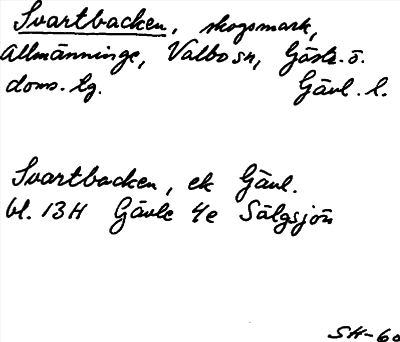 Svartbacken, skogsmark,
Allmänninge, Valbo sn, Gästr. ö.
doms. lg. Gävl. l.
Svartbacken, ek Gävl.
bl. 13H Gävle 4e Sälgsjön
SH-60